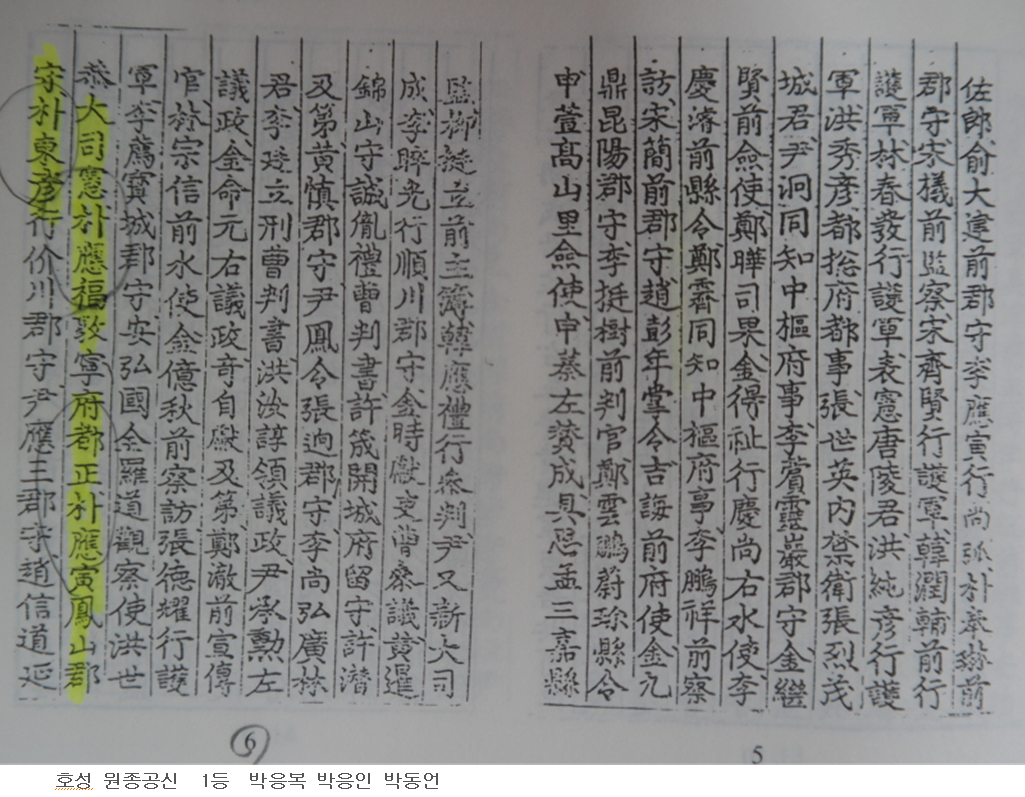 佐郎俞大建前郡守李應寅行尚弘朴奉獜前
郡守宋機前監察宋齊賢行護軍韓潤輔前行
護軍林春發行護軍表憲唐陵君洪純彦行護
軍洪秀彦都摠府都事張世英內禁衛張烈茂
城君尹泂同知中樞府事李蓂靈巖郡守金繼
賢前僉使鄭曄司果金得祉行慶尚右水使李
慶濬前縣令鄭霽同知中樞府事李鵬祥前察
訪宋簡前郡守趙彭年掌令吉誨前府使金九
鼎昆陽郡守李挺樹前判官鄭雲鵬蔚珍縣令
申萱高山里僉使申蓁左贊成具思孟三嘉縣
監柳挺立前主簿韓應禮行參判尹又新大司
成李睟光行順川郡守金時獻吏曹參議黃暹
錦山守誠胤禮曹判書許筬開城府留守許潛
及第黃慎郡守尹鳳令張逈郡守李尚弘廣林
君李廷立刑曹判書洪汝諄領議政尹承勳左
議政金命元右議政奇自獻及第鄭澈前宣傳
官林宗信前水使金億秋前察訪張德耀行護
軍李薦寶城郡守安弘國全羅道觀察使洪世
恭大司憲朴應福敦寧府都正朴應寅鳳山郡
守朴東彦行价川郡守尹應三郡守趙信道延
5
6
호성 원종공신 1등 박응복 박응인 박동언